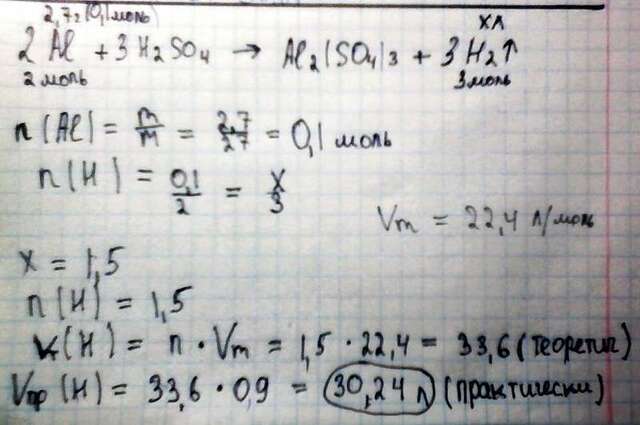 2,7г (0,1 моль)
хл
2Al + 3H₂SO₄ → Al₂(SO₄)₃ + 3H₂↑
2 моль
3 моль
n(Al) = m/m = 2,7/27 = 0,1 моль
n(H) = 0,1/2 = x/3
Vm = 22,4 л/моль
x = 1,5
n(H) = 1,5
V(H) = n · Vm = 1,5 · 22,4 = 33,6 (теоретич)
Vпр (H) = 33,6 · 0,9 = 30,24 л (практически)